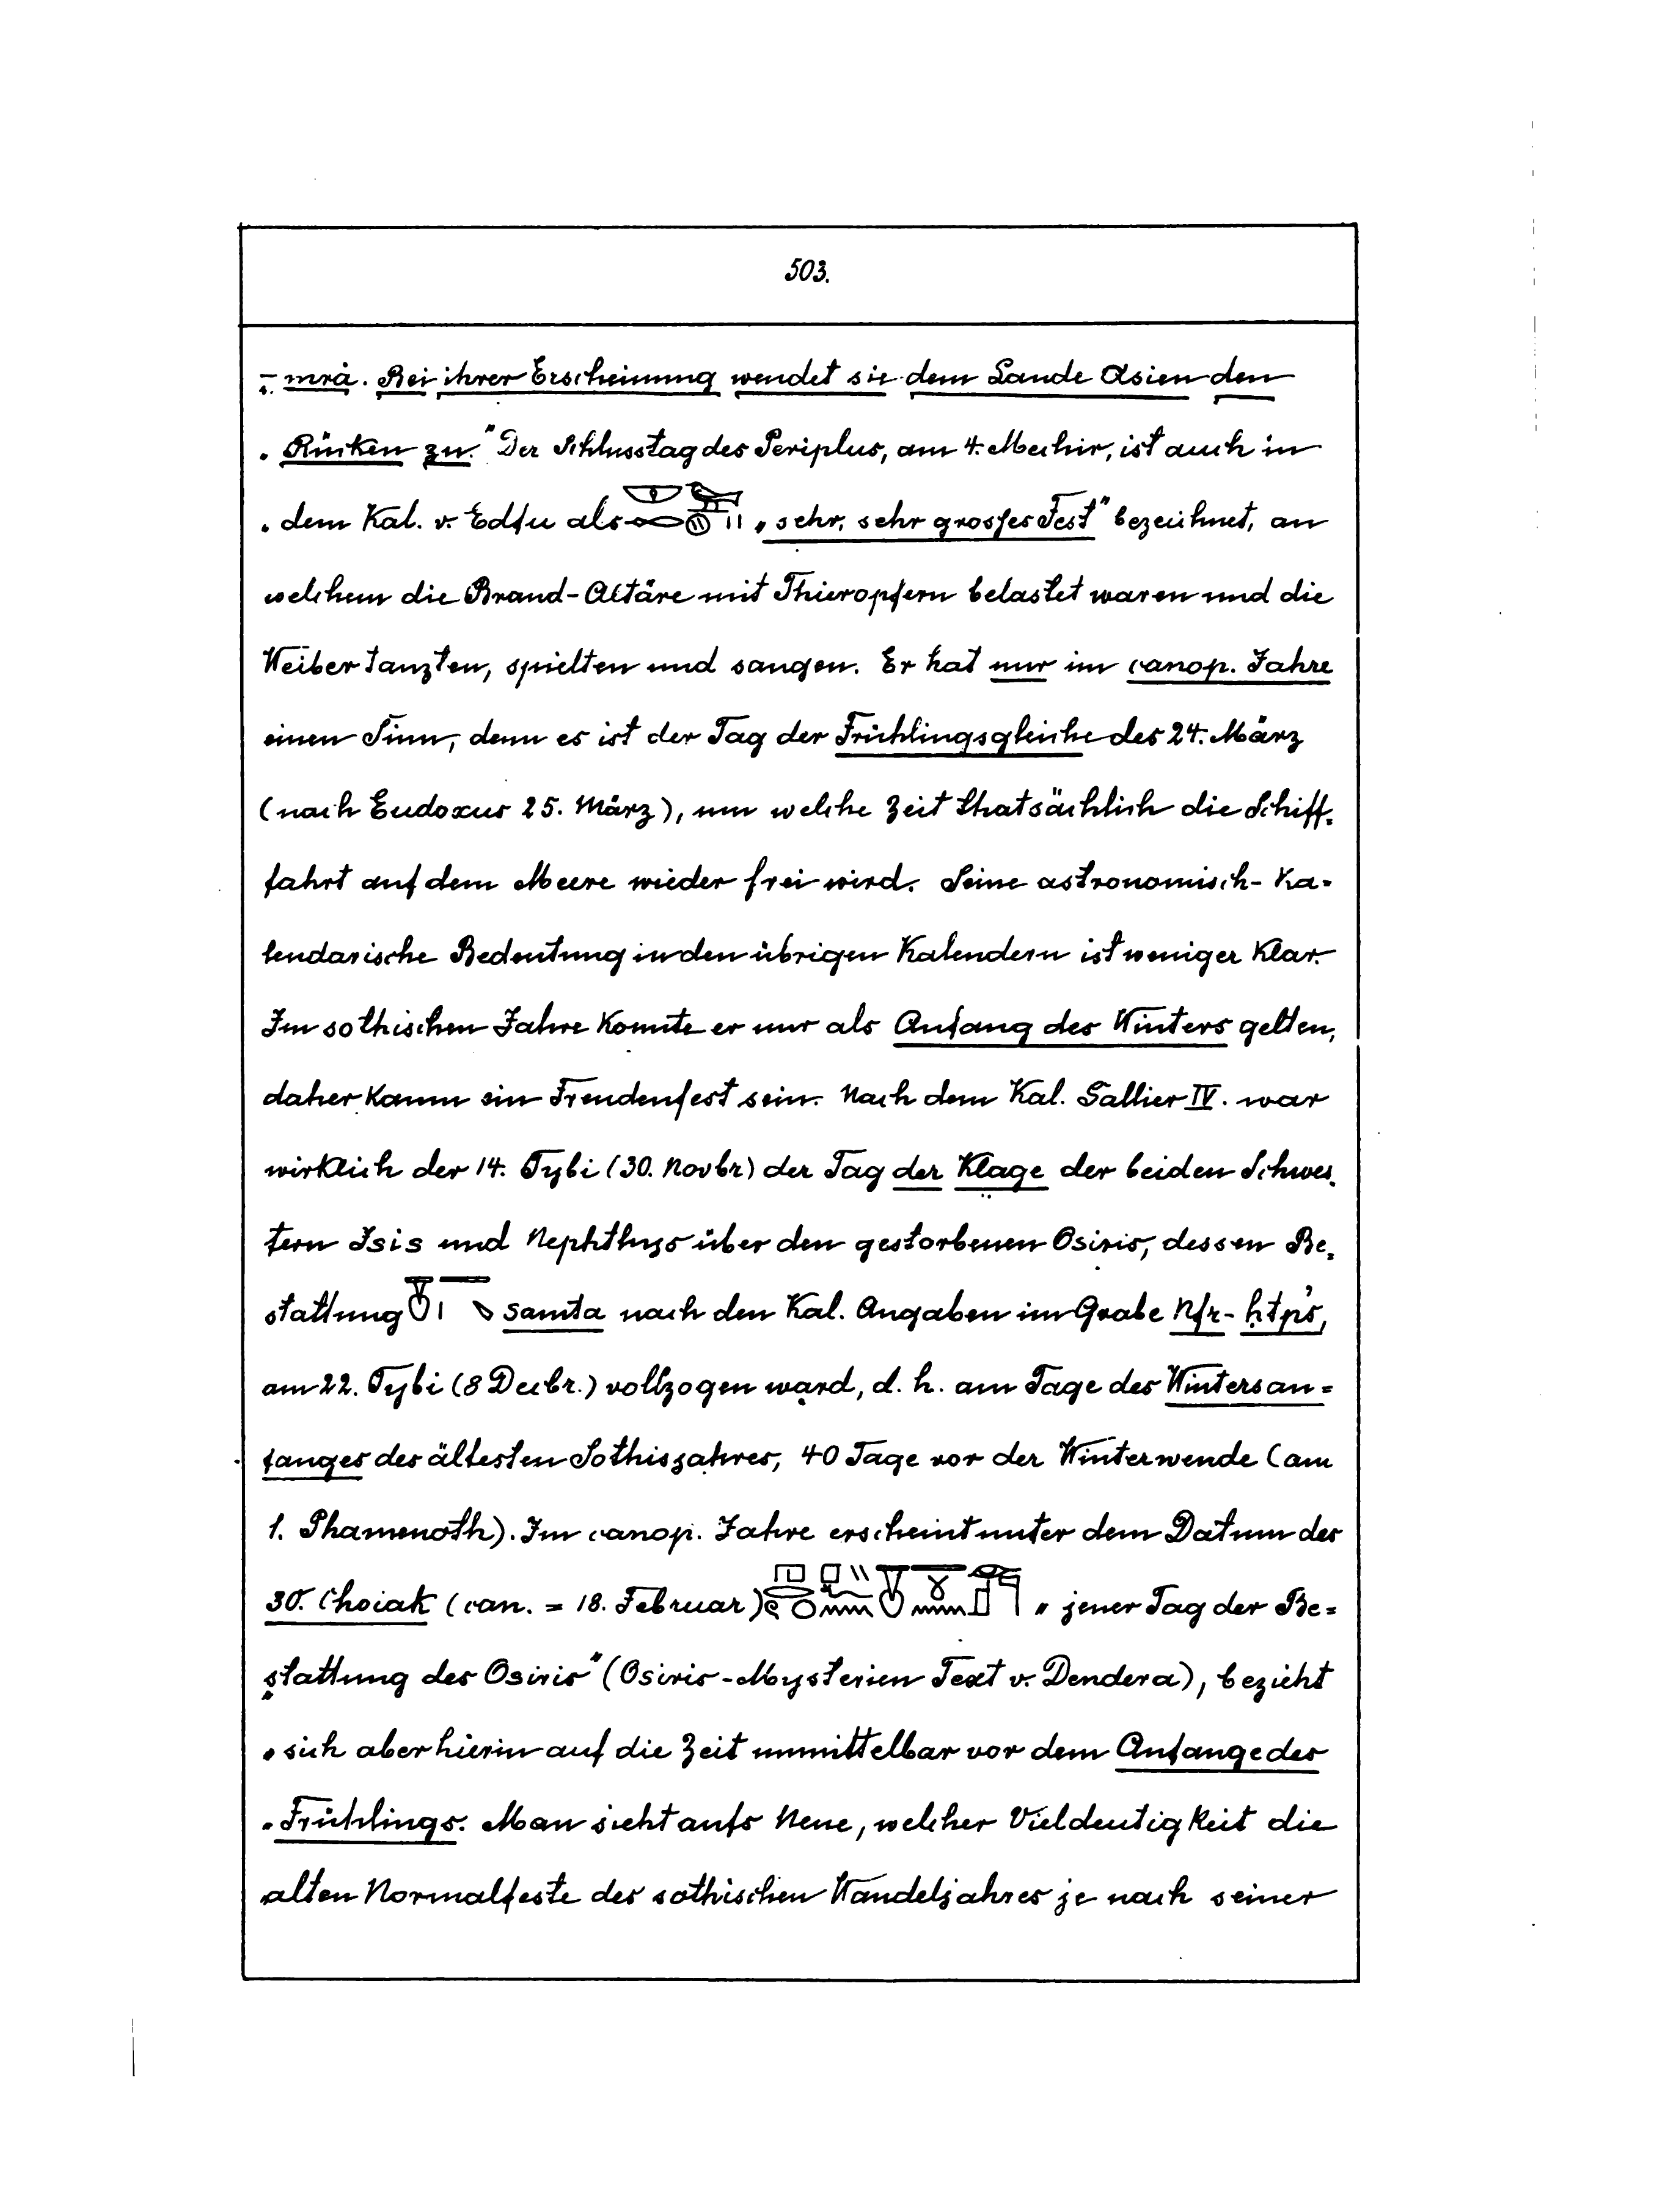 503.
- mrȧ. Bei ihrer Erscheinung wendet sie dem Lande Asien den
„ Rücken zu." Der Schlusstag des Periplus, am 4. Mechir, ist auch in
„ dem Kal. v. Edfu als „sehr, sehr grosses Fest" bezeichnet, an
welchem die Brand-Altäre mit Thieropfern belastet waren und die
Weiber tanzten, spielten und sangen. Er hat nur im canop. Jahre
einen Sinn, denn es ist der Tag der Frühlingsgleiche des 24. März
(nach Eudoxus 25. März), um welche Zeit thatsächlich die Schiff=
fahrt auf dem Meere wieder frei wird. Seine astronomisch-ka=
lendarische Bedeutung in den übrigen Kalendern ist weniger klar.
Im sothischen Jahre konnte er nur als Anfang des Winters gelten,
daher kaum ein Freudenfest sein. Nach dem Kal. Sallier IV. war
wirklich der 14. Tybi (30. Novbr) der Tag der Klage der beiden Schwes=
tern Isis und Nephthys über den gestorbenen Osiris, dessen Be=
stattung samta nach den Kal. Angaben im Grabe Nfr-ḥtp's,
am 22. Tybi (8 Decbr.) vollzogen ward, d. h. am Tage des Wintersan=
fanges des ältesten Sothisjahres, 40 Tage vor der Winterwende (am
1. Phamenoth). Im canop. Jahre erscheint unter dem Datum des
30. Choiak (can. = 18. Februar) „ jener Tag der Be=
„stattung des Osiris" (Osiris-Mysterien Text v. Dendera), bezieht
„ sich aber hierin auf die Zeit unmittelbar vor dem Anfange des
„ Frühlings. Man sieht aufs Neue, welcher Vieldeutigkeit die
alten Normalfeste des sothischen Wandeljahres je nach seiner